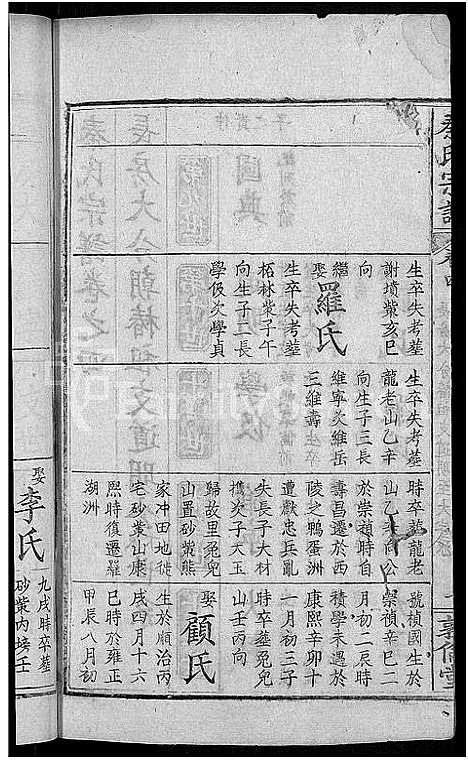 秦氏宗譜
卷四
敦倫堂
生卒失考墓
謝墳紫亥巳
向
繼娶羅氏
生卒失考墓
柘林紫子午
向生子二長
學伋次學貞
生卒失考墓
龍老山乙辛
向生子三長
維寧次維岳
三維壽
時卒墓龍老
山乙辛向公
於崇禎時自
壽昌遷於西
陵之鴨蛋洲
遭獻忠兵亂
失長子大材
攜次子大玉
歸故里兔兒
山置砂紫熊
家冲田地徙
宅砂紫山康
熙時復遷羅
湖洲
號禎國生於
崇禎辛巳二
月初二辰時
積學未遇於
康熙辛卯十
一月初三子
時卒墓兔兒
山壬丙向
娶顧氏
生於順治丙
戌四月十六
巳時於雍正
甲辰八月初
娶李氏
九戌時卒墓
砂紫內塝壬